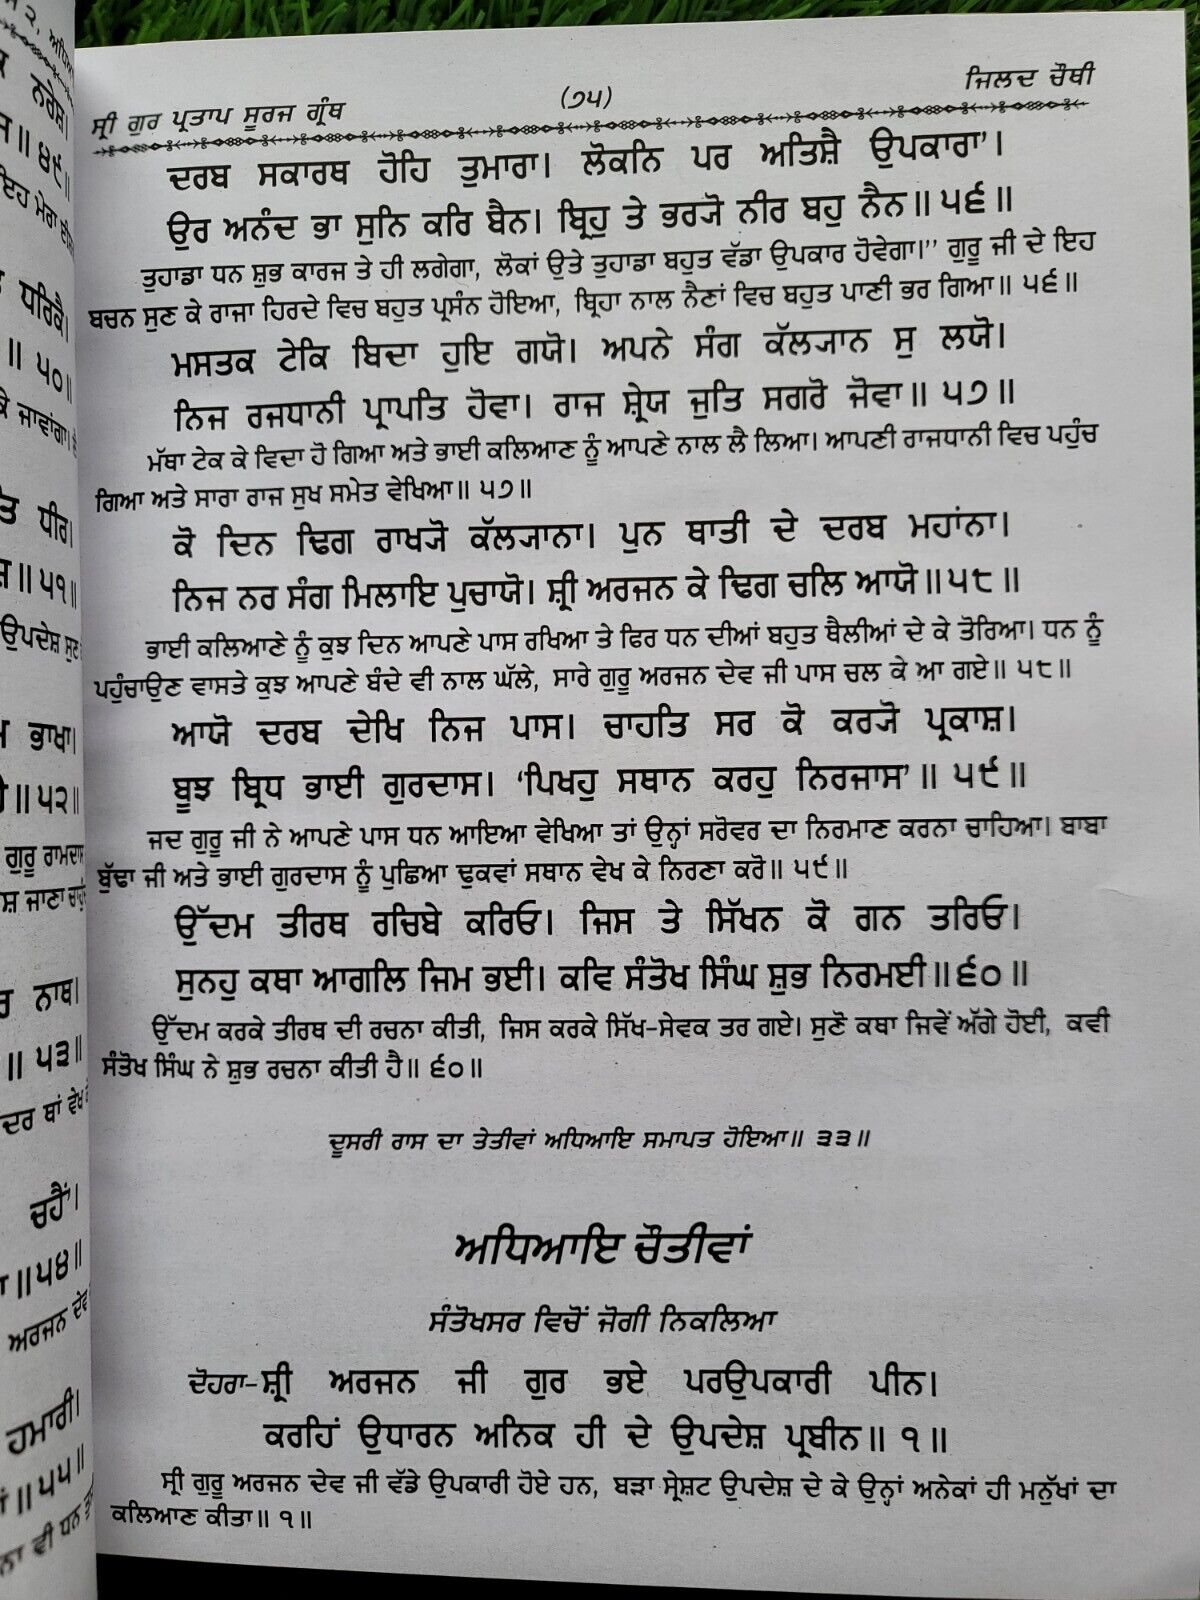 ਸ੍ਰੀ ਗੁਰ ਪ੍ਰਤਾਪ ਸੂਰਜ ਗ੍ਰੰਥ
(੭੫)
ਜਿਲਦ ਚੌਥੀ
ਦਰਬ ਸਕਾਰਥ ਹੋਹਿ ਤੁਮਾਰਾ। ਲੋਕਨਿ ਪਰ ਅਤਿਸ਼ੈ ਉਪਕਾਰਾ'।
ਉਰ ਅਨੰਦ ਭਾ ਸੁਨਿ ਕਰਿ ਬੈਨ। ਬ੍ਰਿਹੁ ਤੇ ਭਰ੍ਯੋ ਨੀਰ ਬਹੁ ਨੈਨ॥੫੬॥
ਤੁਹਾਡਾ ਧਨ ਸ਼ੁਭ ਕਾਰਜ ਤੇ ਹੀ ਲਗੇਗਾ, ਲੋਕਾਂ ਉਤੇ ਤੁਹਾਡਾ ਬਹੁਤ ਵੱਡਾ ਉਪਕਾਰ ਹੋਵੇਗਾ।'' ਗੁਰੂ ਜੀ ਦੇ ਇਹ
ਬਚਨ ਸੁਣ ਕੇ ਰਾਜਾ ਹਿਰਦੇ ਵਿਚ ਬਹੁਤ ਪ੍ਰਸੰਨ ਹੋਇਆ, ਬ੍ਰਿਹਾ ਨਾਲ ਨੈਣਾਂ ਵਿਚ ਬਹੁਤ ਪਾਣੀ ਭਰ ਗਿਆ॥ ੫੬॥
ਮਸਤਕ ਟੇਕਿ ਬਿਦਾ ਹੁਇ ਗਯੋ। ਅਪਨੇ ਸੰਗ ਕੱਲ੍ਯਾਨ ਸੁ ਲਯੋ।
ਨਿਜ ਰਜਧਾਨੀ ਪ੍ਰਾਪਤਿ ਹੋਵਾ। ਰਾਜ ਸ਼੍ਰੇਯ ਜੁਤਿ ਸਗਰੋ ਜੋਵਾ॥੫੭॥
ਮੱਥਾ ਟੇਕ ਕੇ ਵਿਦਾ ਹੋ ਗਿਆ ਅਤੇ ਭਾਈ ਕਲਿਆਣ ਨੂੰ ਆਪਣੇ ਨਾਲ ਲੈ ਲਿਆ। ਆਪਣੀ ਰਾਜਧਾਨੀ ਵਿਚ ਪਹੁੰਚ
ਗਿਆ ਅਤੇ ਸਾਰਾ ਰਾਜ ਸੁਖ ਸਮੇਤ ਵੇਖਿਆ॥ ੫੭॥
ਕੋ ਦਿਨ ਢਿਗ ਰਾਖ੍ਯੋ ਕੱਲ੍ਯਾਨਾ। ਪੁਨ ਥਾਤੀ ਦੇ ਦਰਬ ਮਹਾਂਨਾ।
ਨਿਜ ਨਰ ਸੰਗ ਮਿਲਾਇ ਪੁਚਾਯੋ। ਸ਼੍ਰੀ ਅਰਜਨ ਕੇ ਢਿਗ ਚਲਿ ਆਯੋ॥੫੮॥
ਭਾਈ ਕਲਿਆਣੇ ਨੂੰ ਕੁਝ ਦਿਨ ਆਪਣੇ ਪਾਸ ਰਖਿਆ ਤੇ ਫਿਰ ਧਨ ਦੀਆਂ ਬਹੁਤ ਥੈਲੀਆਂ ਦੇ ਕੇ ਤੋਰਿਆ। ਧਨ ਨੂੰ
ਪਹੁੰਚਾਉਣ ਵਾਸਤੇ ਕੁਝ ਆਪਣੇ ਬੰਦੇ ਵੀ ਨਾਲ ਘੱਲੇ, ਸਾਰੇ ਗੁਰੂ ਅਰਜਨ ਦੇਵ ਜੀ ਪਾਸ ਚਲ ਕੇ ਆ ਗਏ॥ ੫੮॥
ਆਯੋ ਦਰਬ ਦੇਖਿ ਨਿਜ ਪਾਸ। ਚਾਹਤਿ ਸਰ ਕੋ ਕਰ੍ਯੋ ਪ੍ਰਕਾਸ਼।
ਬੂਝ ਬ੍ਰਿਧ ਭਾਈ ਗੁਰਦਾਸ। 'ਪਿਖਹੁ ਸਥਾਨ ਕਰਹੁ ਨਿਰਜਾਸ'॥੫੯॥
ਜਦ ਗੁਰੂ ਜੀ ਨੇ ਆਪਣੇ ਪਾਸ ਧਨ ਆਇਆ ਵੇਖਿਆ ਤਾਂ ਉਨ੍ਹਾਂ ਸਰੋਵਰ ਦਾ ਨਿਰਮਾਣ ਕਰਨਾ ਚਾਹਿਆ। ਬਾਬਾ
ਬੁੱਢਾ ਜੀ ਅਤੇ ਭਾਈ ਗੁਰਦਾਸ ਨੂੰ ਪੁਛਿਆ ਢੁਕਵਾਂ ਸਥਾਨ ਵੇਖ ਕੇ ਨਿਰਣਾ ਕਰੋ॥ ੫੯॥
ਉੱਦਮ ਤੀਰਥ ਰਚਿਬੇ ਕਰਿਓ। ਜਿਸ ਤੇ ਸਿੱਖਨ ਕੋ ਗਨ ਤਰਿਓ।
ਸੁਨਹੁ ਕਥਾ ਆਗਲਿ ਜਿਮ ਭਈ। ਕਵਿ ਸੰਤੋਖ ਸਿੰਘ ਸ਼ੁਭ ਨਿਰਮਈ॥੬੦॥
ਉੱਦਮ ਕਰਕੇ ਤੀਰਥ ਦੀ ਰਚਨਾ ਕੀਤੀ, ਜਿਸ ਕਰਕੇ ਸਿੱਖ-ਸੇਵਕ ਤਰ ਗਏ। ਸੁਣੋ ਕਥਾ ਜਿਵੇਂ ਅੱਗੇ ਹੋਈ, ਕਵੀ
ਸੰਤੋਖ ਸਿੰਘ ਨੇ ਸ਼ੁਭ ਰਚਨਾ ਕੀਤੀ ਹੈ॥ ੬੦॥
ਦੂਸਰੀ ਰਾਸ ਦਾ ਤੇਤੀਵਾਂ ਅਧਿਆਇ ਸਮਾਪਤ ਹੋਇਆ॥ ੩੩॥
ਅਧਿਆਇ ਚੌਤੀਵਾਂ
ਸੰਤੋਖਸਰ ਵਿਚੋਂ ਜੋਗੀ ਨਿਕਲਿਆ
ਦੋਹਰਾ-ਸ਼੍ਰੀ ਅਰਜਨ ਜੀ ਗੁਰ ਭਏ ਪਰਉਪਕਾਰੀ ਪੀਨ।
ਕਰਹਿਂ ਉਧਾਰਨ ਅਨਿਕ ਹੀ ਦੇ ਉਪਦੇਸ਼ ਪ੍ਰਬੀਨ॥੧॥
ਸ੍ਰੀ ਗੁਰੂ ਅਰਜਨ ਦੇਵ ਜੀ ਵੱਡੇ ਉਪਕਾਰੀ ਹੋਏ ਹਨ, ਬੜਾ ਸ੍ਰੇਸ਼ਟ ਉਪਦੇਸ਼ ਦੇ ਕੇ ਉਨ੍ਹਾਂ ਅਨੇਕਾਂ ਹੀ ਮਨੁੱਖਾਂ ਦਾ
ਕਲਿਆਣ ਕੀਤਾ॥ ੧॥